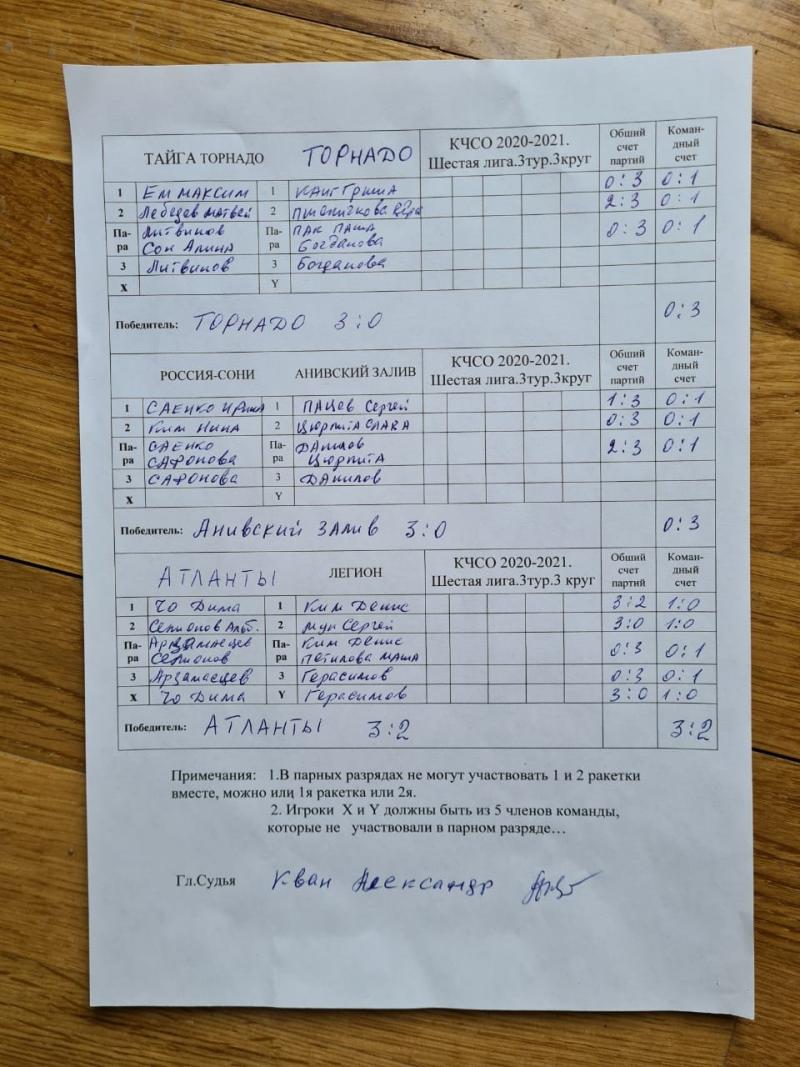 ТАЙГА ТОРНАДО ТОРНАДО КЧСО 2020-2021. Шестая лига.3тур.3круг Общий счет партий Коман-дный счет
1 Ем Максим 1 0:3 0:1
2 Лебедев Матвей 2 2:3 0:1
Па-ра Литвинов Сон Алина Па-ра Пак Паша Богданова 0:3 0:1
3 Литвинов 3 Богданова
X Y
Победитель: ТОРНАДО 3:0 0:3
РОССИЯ-СОНИ АНИВСКИЙ ЗАЛИВ КЧСО 2020-2021. Шестая лига.3тур.3круг Общий счет партий Коман-дный счет
1 Саенко Ирина 1 Пацев Сергей 1:3 0:1
2 Ким Нина 2 Цюрпита Слава 0:3 0:1
Па-ра Саенко Сафонова Па-ра Данилов Цюрпита 2:3 0:1
3 Сафонова 3 Данилов
X Y
Победитель: Анивский залив 3:0 0:3
АТЛАНТЫ ЛЕГИОН КЧСО 2020-2021. Шестая лига.3тур.3 круг Общий счет партий Коман-дный счет
1 Чо Дима 1 Ким Денис 3:2 1:0
2 Семионов Альб. 2 Мун Сергей 3:0 1:0
Па-ра Арзамасцев Семионов Па-ра Ким Денис Маша 0:3 0:1
3 Арзамасцев 3 Герасимов 0:3 0:1
X Чо Дима Y Герасимов 3:0 1:0
Победитель: АТЛАНТЫ 3:2 3:2
Примечания: 1.В парных разрядах не могут участвовать 1 и 2 ракетки
вместе, можно или 1я ракетка или 2я.
2. Игроки X и Y должны быть из 5 членов команды,
которые не участвовали в парном разряде…
Гл.Судья Кван Александр